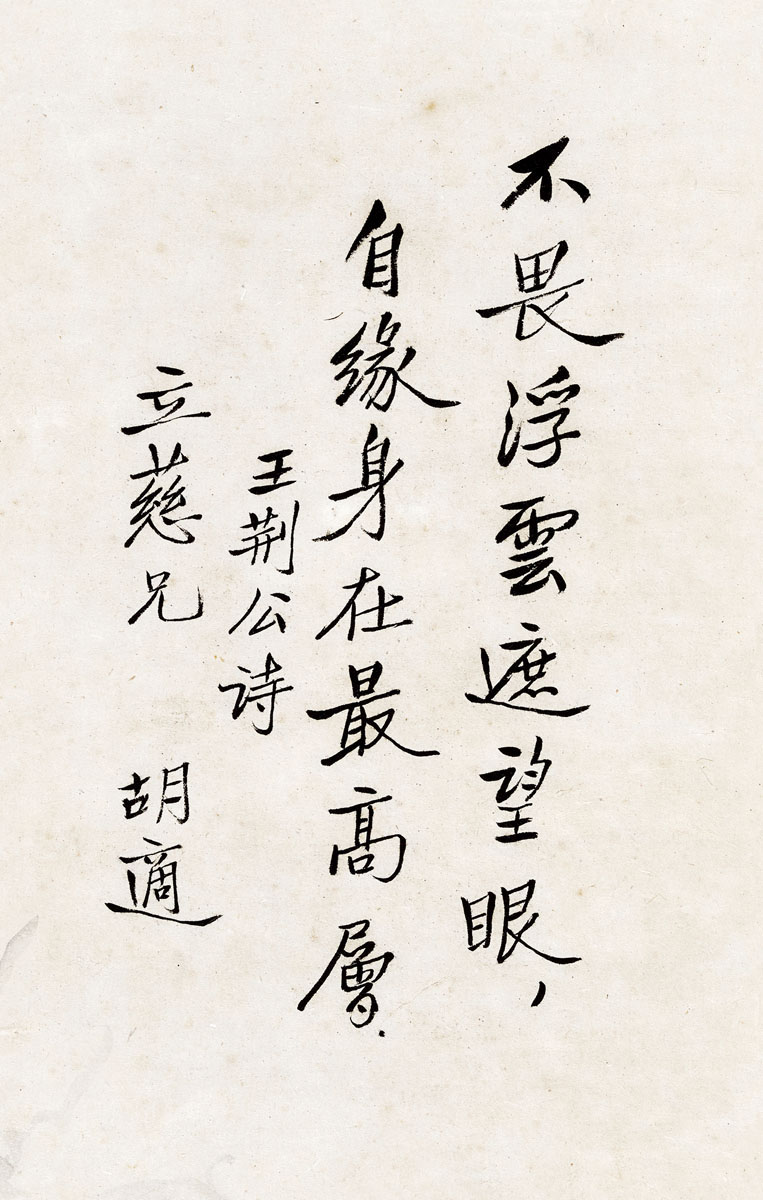 不畏浮雲遮望眼，
自緣身在最高層.
王荆公诗
立慈兄
胡適